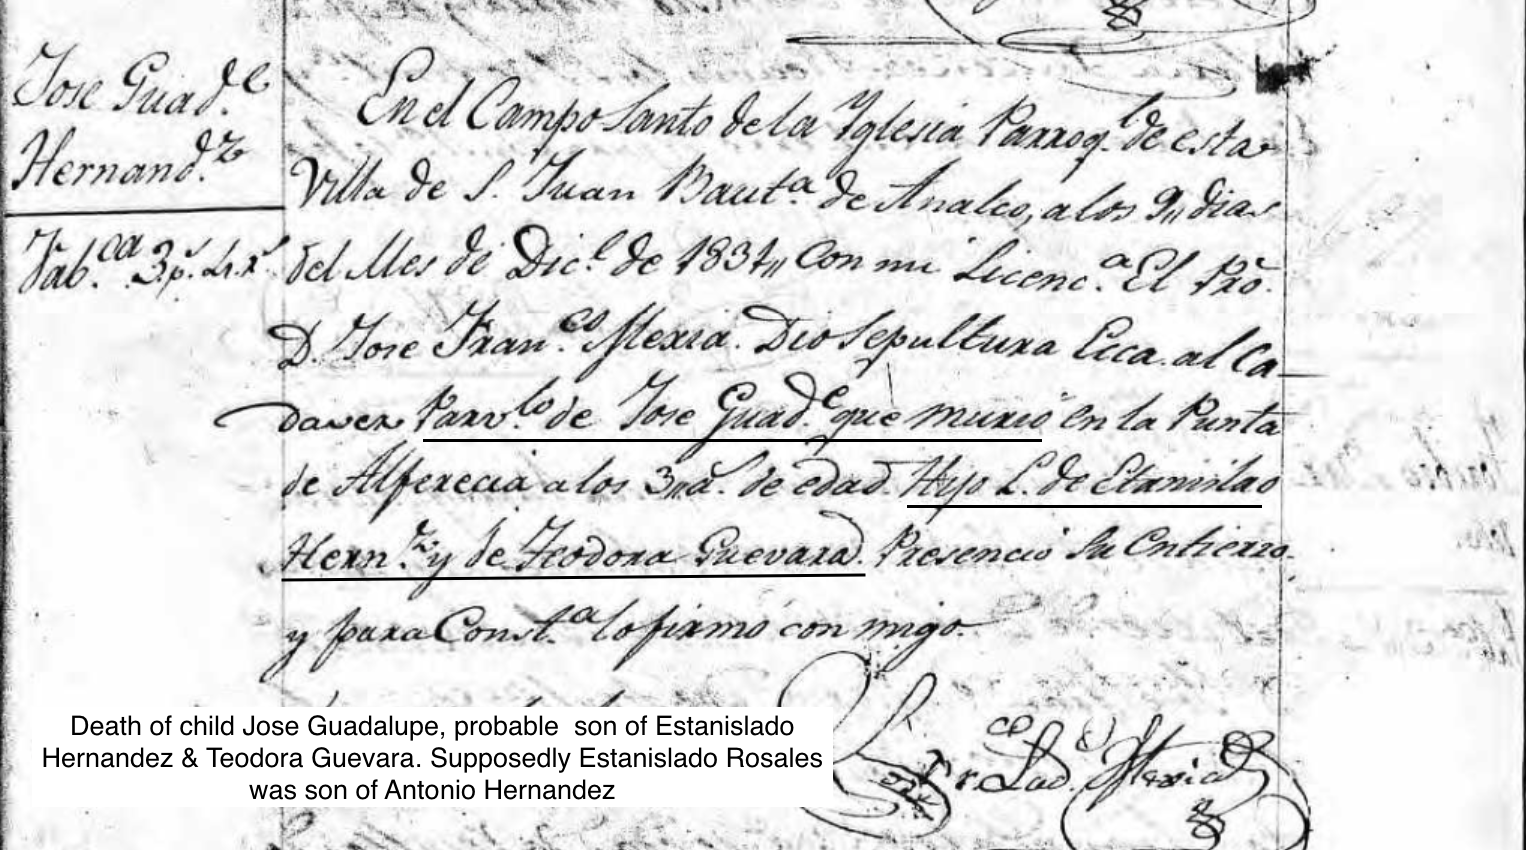 Jose Guad.e
Hernand.z
Fab.ca 3.p.s 4.r.s
En el Campo Santo de la Yglesia Parroq.l de esta
Villa de S. Juan Baut.a de Analco, a los 9,, dias
del Mes de Dic.e de 1834,, Con mi Licenc.a El Pro.
D. Jose Fran.co Mexia. Dio Sepultura Ecca. al Ca-
daver Parv.lo de Jose Guad.e que murio en la Punta
de Alferecia a los 3,, a.s de edad. Hijo L. de Etanislao
Hern.z y de Teodora Guevara. Presencio su Entierro.
y para Const.a lo firmó con migo.
Death of child Jose Guadalupe, probable son of Estanislado
Hernandez & Teodora Guevara. Supposedly Estanislado Rosales
was son of Antonio Hernandez